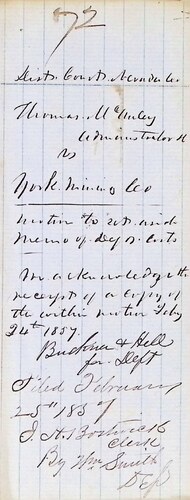 72
Dist. Court Nevada Co
Thomas McAuley
Administrator &c
vs
York Mining Co
motion to set aside
Memo of def's Costs
We acknowledge the
receipt of a copy of
the within motion Feby
24th 1857.
Buckner & Hill
for Deft
Filed February
25th 1857
J. H. Bostwick
Clerk
By Wm Smith
Dep